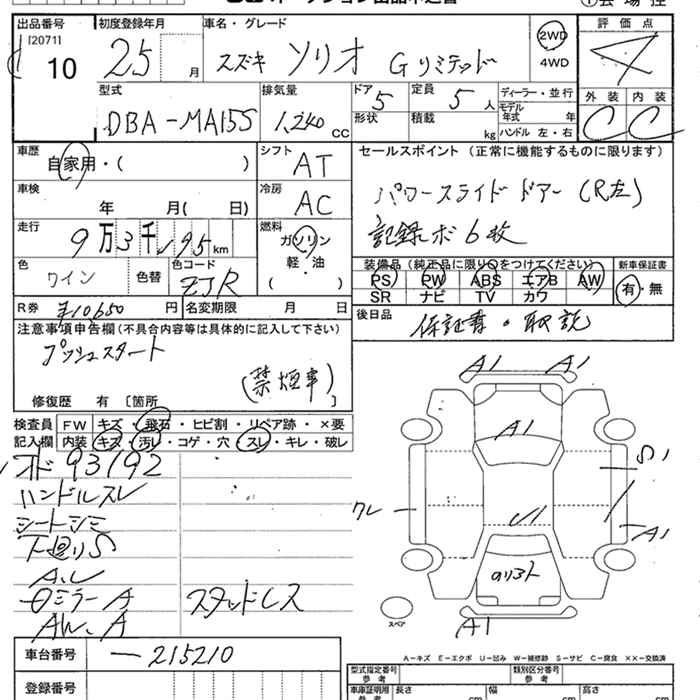 出品番号 初度登録年月 車名・グレード 評価点
120711
10 25 月 スズキ ソリオ Gリミテッド 2WD 4WD 4
型式 排気量 ドア 5 定員 5人 ディーラー・並行 外装 内装
DBA-MA15S 1,240 CC 形状 積載 kg モデル年式 年 ハンドル 左・右 C C
車歴 自家用・( ) シフト AT セールスポイント (正常に機能するものに限ります)
車検 年 月( 日) 冷房 AC パワースライドドアー(R左)
走行 9万3千195km 燃料 ガソリン 軽・油 ( ) 記録ボ6枚
色 ワイン 色替 色コード ZJR 装備品(純正品に限り○をつけてください) 新車保証書
PS PW ABS エアB AW 有・無
SR ナビ TV カワ
R券 ¥10650 円 名変期限 月 日 後日品 保証書・取説
注意事項申告欄(不具合内容等は具体的に記入して下さい)
プッシュスタート
(禁煙車)
修復歴 有 〔箇所 〕
検査員 FW キズ・飛石・ヒビ割・リペア跡・×要
記入欄 内装 キズ・汚レ・コゲ・穴・スレ・キレ・破レ
メーター 93192
ハンドルスレ
シートシミ
下廻りS
Aレ
ミラーA スタッドレス
AW、A
A1 A1
A1
S1
クレ
A1
A1
スペア
A-キズ E-エクボ U-凹み W-補修跡 S-サビ C-腐食 ××-交換済
車台番号 -215210
型式指定番号 参考 類別区分番号 参考
登録番号
車庫証明用 参考 長さ cm 幅 cm 高さ cm